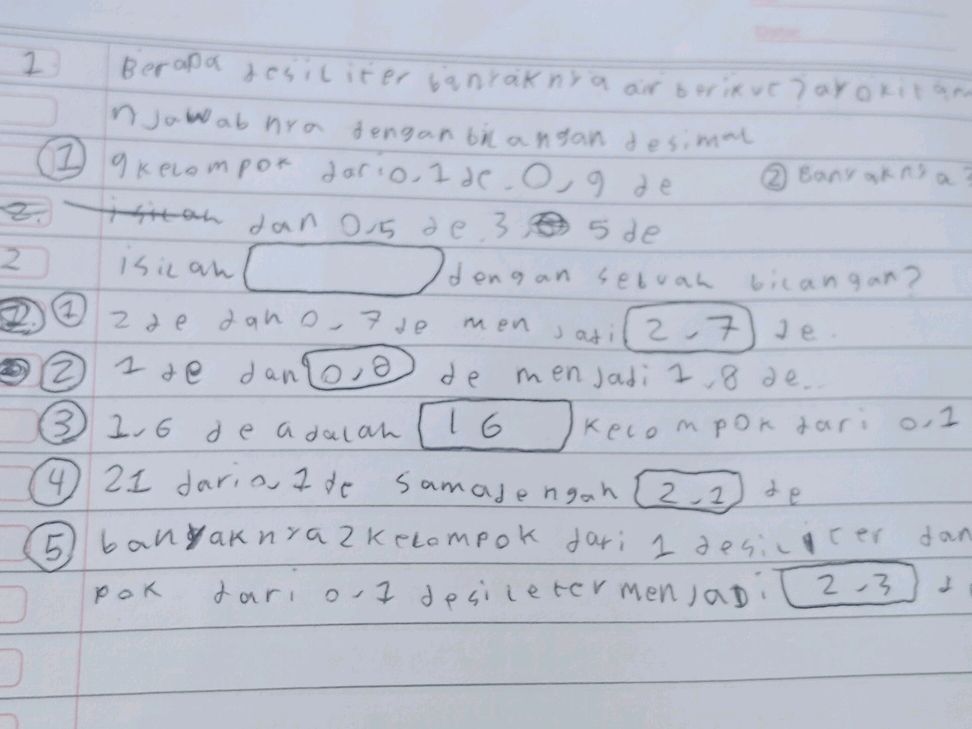 1 Berapa desiliter banyaknya air berikut? ayo kita
n jawab nya dengan bilangan desimal
① 9 kelompok dari 0,1 de. 0,9 de ② Banyaknya
dan 0,5 de 3, 5 de
2 isilah dengan sebuah bilangan?
① 2 de dan 0,7 de menjadi 2,7 de.
② 1 de dan 0,8 de menjadi 1,8 de..
③ 1,6 de adalah 16 kelompok dari 0,1
④ 21 dari 0,1 de samadengah 2,1 de
⑤ banyaknya 2 kelompok dari 1 desiliter dan
pok dari 0,1 desileter menjadi 2,3 d